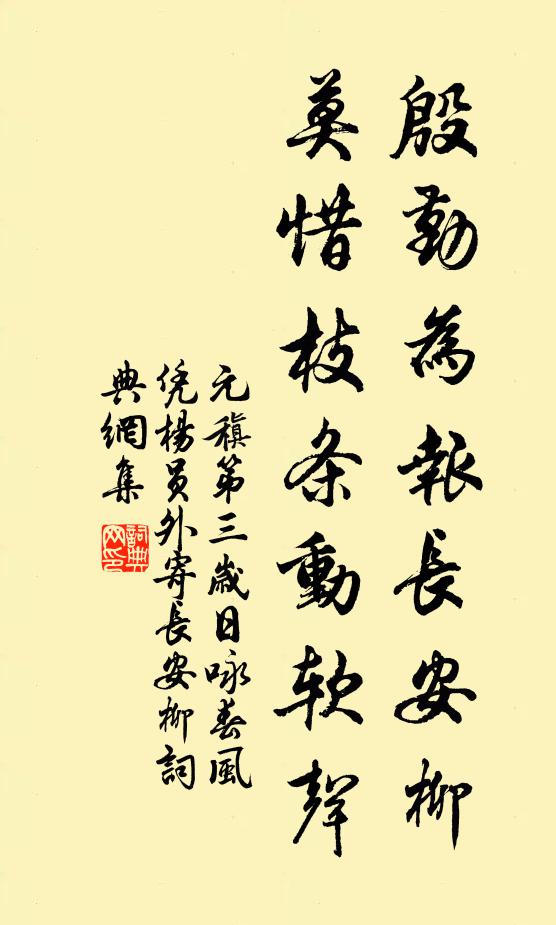 殷勤為報長安柳
莫惜枝条動軟聲
元稹第三歲日咏春風
凭楊員外寄長安柳詞
典網集
詞典
网印